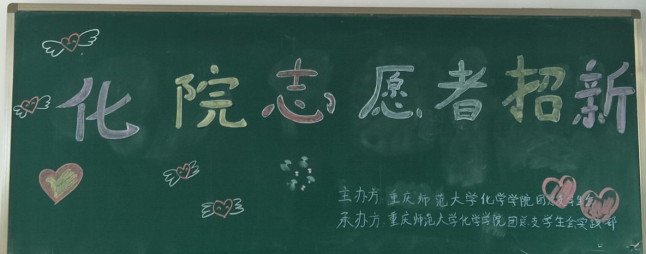 化院志愿者招新
主办方:重庆师范大学化学学院团总支学生会
承办方:重庆师范大学化学学院团总支学生会实践部